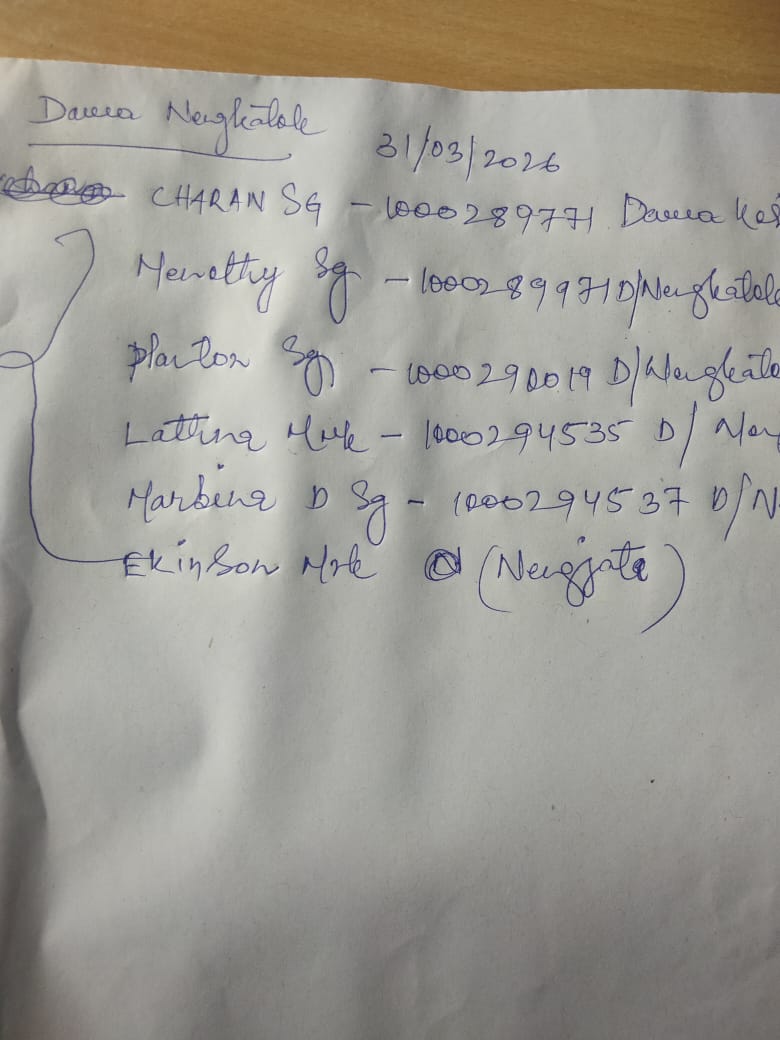 Dawa Nengkatok
31/03/2026
CHARAN SG - 1000289771 Dawa
Menothy Sg - 1000289971 D/Nengkatok
Plaiton Sg - 1000290019 D/Nengkato
Latting Mrk - 1000294535 D/ Nen
Marbina D Sg - 1000294537 D/N
Ekinson Mrk (Nengjata)